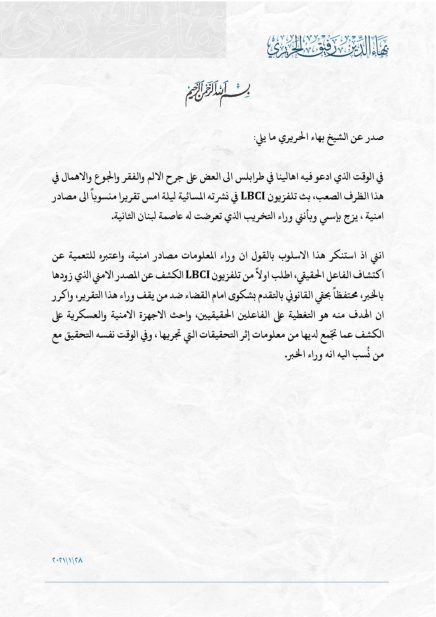 بهاء الدين رفيق الحريري
بسم الله الرحمن الرحيم
صدر عن الشيخ بهاء الحريري ما يلي:
في الوقت الذي ادعو فيه اهالينا في طرابلس الى العض على جرح الالم والفقر والجوع والاهمال في
هذا الظرف الصعب، بث تلفزيون LBCI في نشرته المسائية ليلة امس تقريرا منسوباً الى مصادر
امنية ، يزج بإسمي وبأنني وراء التخريب الذي تعرضت له عاصمة لبنان الثانية.
انني اذ استنكر هذا الاسلوب بالقول ان وراء المعلومات مصادر امنية، واعتبره للتعمية عن
اكتشاف الفاعل الحقيقي، اطلب اولاً من تلفزيون LBCI الكشف عن المصدر الامني الذي زودها
بالخبر، محتفظاً بحقي القانوني بالتقدم بشكوى امام القضاء ضد من يقف وراء هذا التقرير، واكرر
ان الهدف منه هو التغطية على الفاعلين الحقيقيين، واحث الاجهزة الامنية والعسكرية على
الكشف عما تجمع لديها من معلومات إثر التحقيقات التي تجريها ، وفي الوقت نفسه التحقيق مع
من نُسب اليه انه وراء الخبر.
٢٠٢١|١|٢٨